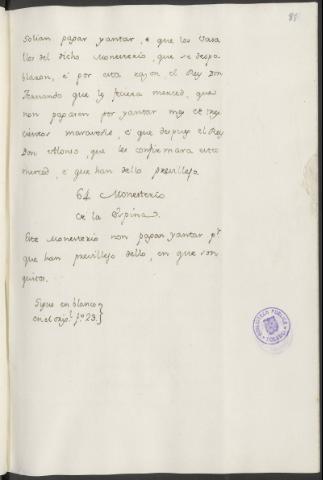 81
Solian pagar yantar, e que los Vasa
llos del dicho Monesterio, que se despo
blaron, e por esta razon el Rey Don
Fernando que les ficiera merced, que
non pagasen por yantar mas de tres
cientos maravedis, e que despues el Rey
Don Alonso, que les confirmara esta
merced, e que han dello previllejo
64 Monesterio
de la Espina.
Este Monesterio non pagan yantar pr.
que han previllejo dello, en que son
quitos.
Sigue en blanco
en el origl. fo. 23.
BIBLIOTECA PUBLICA
TOLEDO